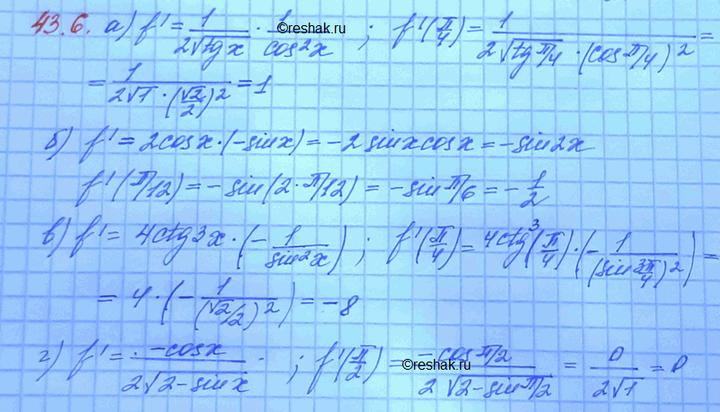 43.6. а) f' = 1/(2√tgx) · 1/cos²x ; f'(π/4) = 1/(2√tgπ/4 · (cosπ/4)²) =
= 1/(2√1 · (√2/2)²) = 1
б) f' = 2cosx·(-sinx) = -2sinxcosx = -sin2x
f'(π/12) = -sin(2·π/12) = -sinπ/6 = -1/2
в) f' = 4ctg3x·(-1/sin²x) ; f'(π/4) = 4ctg³(π/4)·(-1/(sin3π/4)²) =
= 4·(-1/(√2/2)²) = -8
г) f' = -cosx/(2√2-sinx) · ; f'(π/2) = -cosπ/2/(2√2-sinπ/2) = 0/(2√1) = 0
©reshak.ru
©reshak.ru